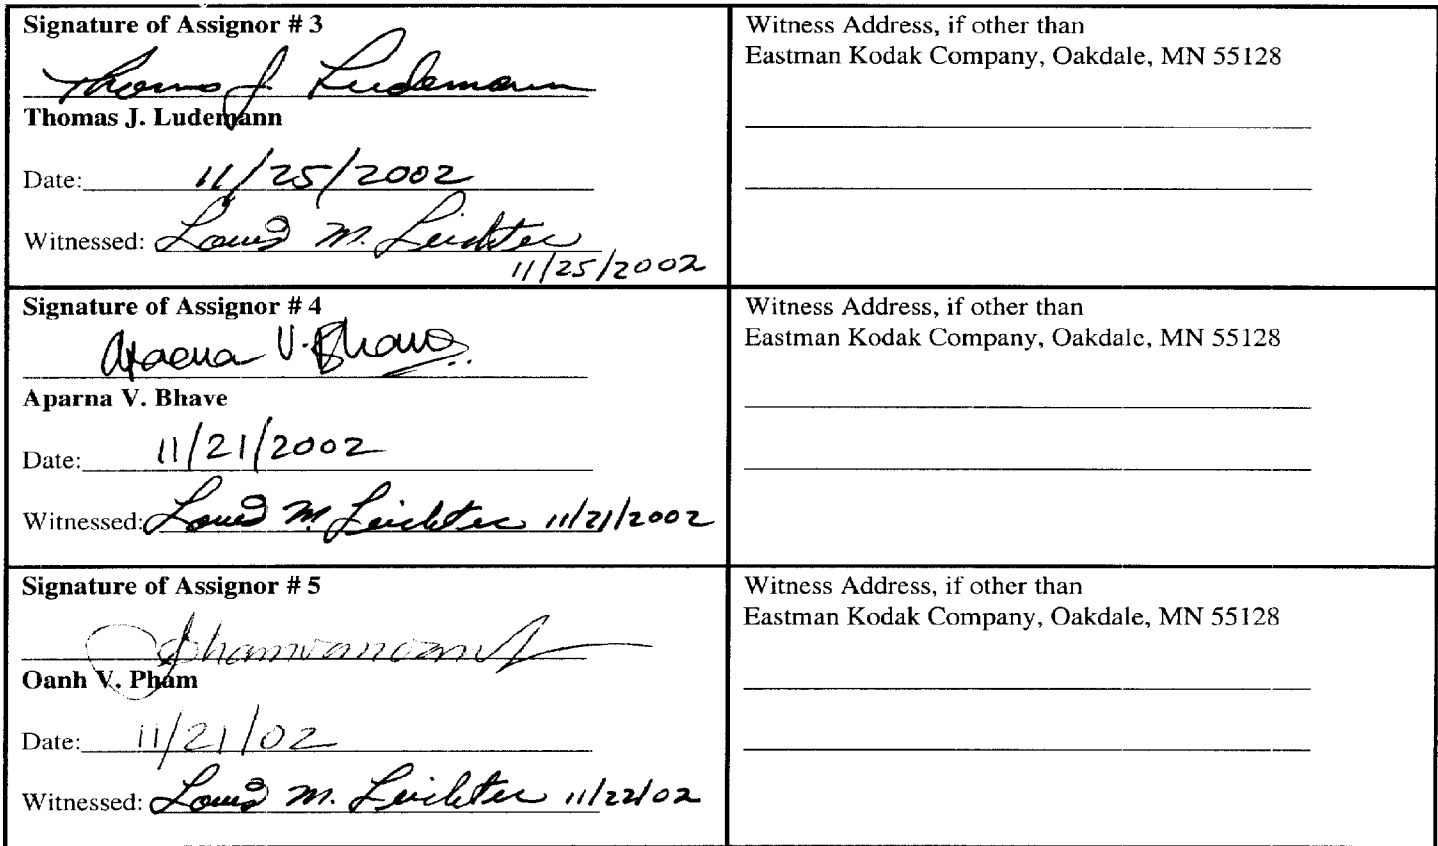 Signature of Assignor # 3
Thomas J. Ludemann
Thomas J. Ludemann
Date: 11/25/2002
Witnessed: Louis M. Leichter
11/25/2002
Witness Address, if other than
Eastman Kodak Company, Oakdale, MN 55128
Signature of Assignor # 4
Aparna V. Bhave
Aparna V. Bhave
Date: 11/21/2002
Witnessed: Louis M. Leichter 11/21/2002
Witness Address, if other than
Eastman Kodak Company, Oakdale, MN 55128
Signature of Assignor # 5
Oanh V. Pham
Date: 11/21/02
Witnessed: Louis M. Leichter 11/22/02
Witness Address, if other than
Eastman Kodak Company, Oakdale, MN 55128